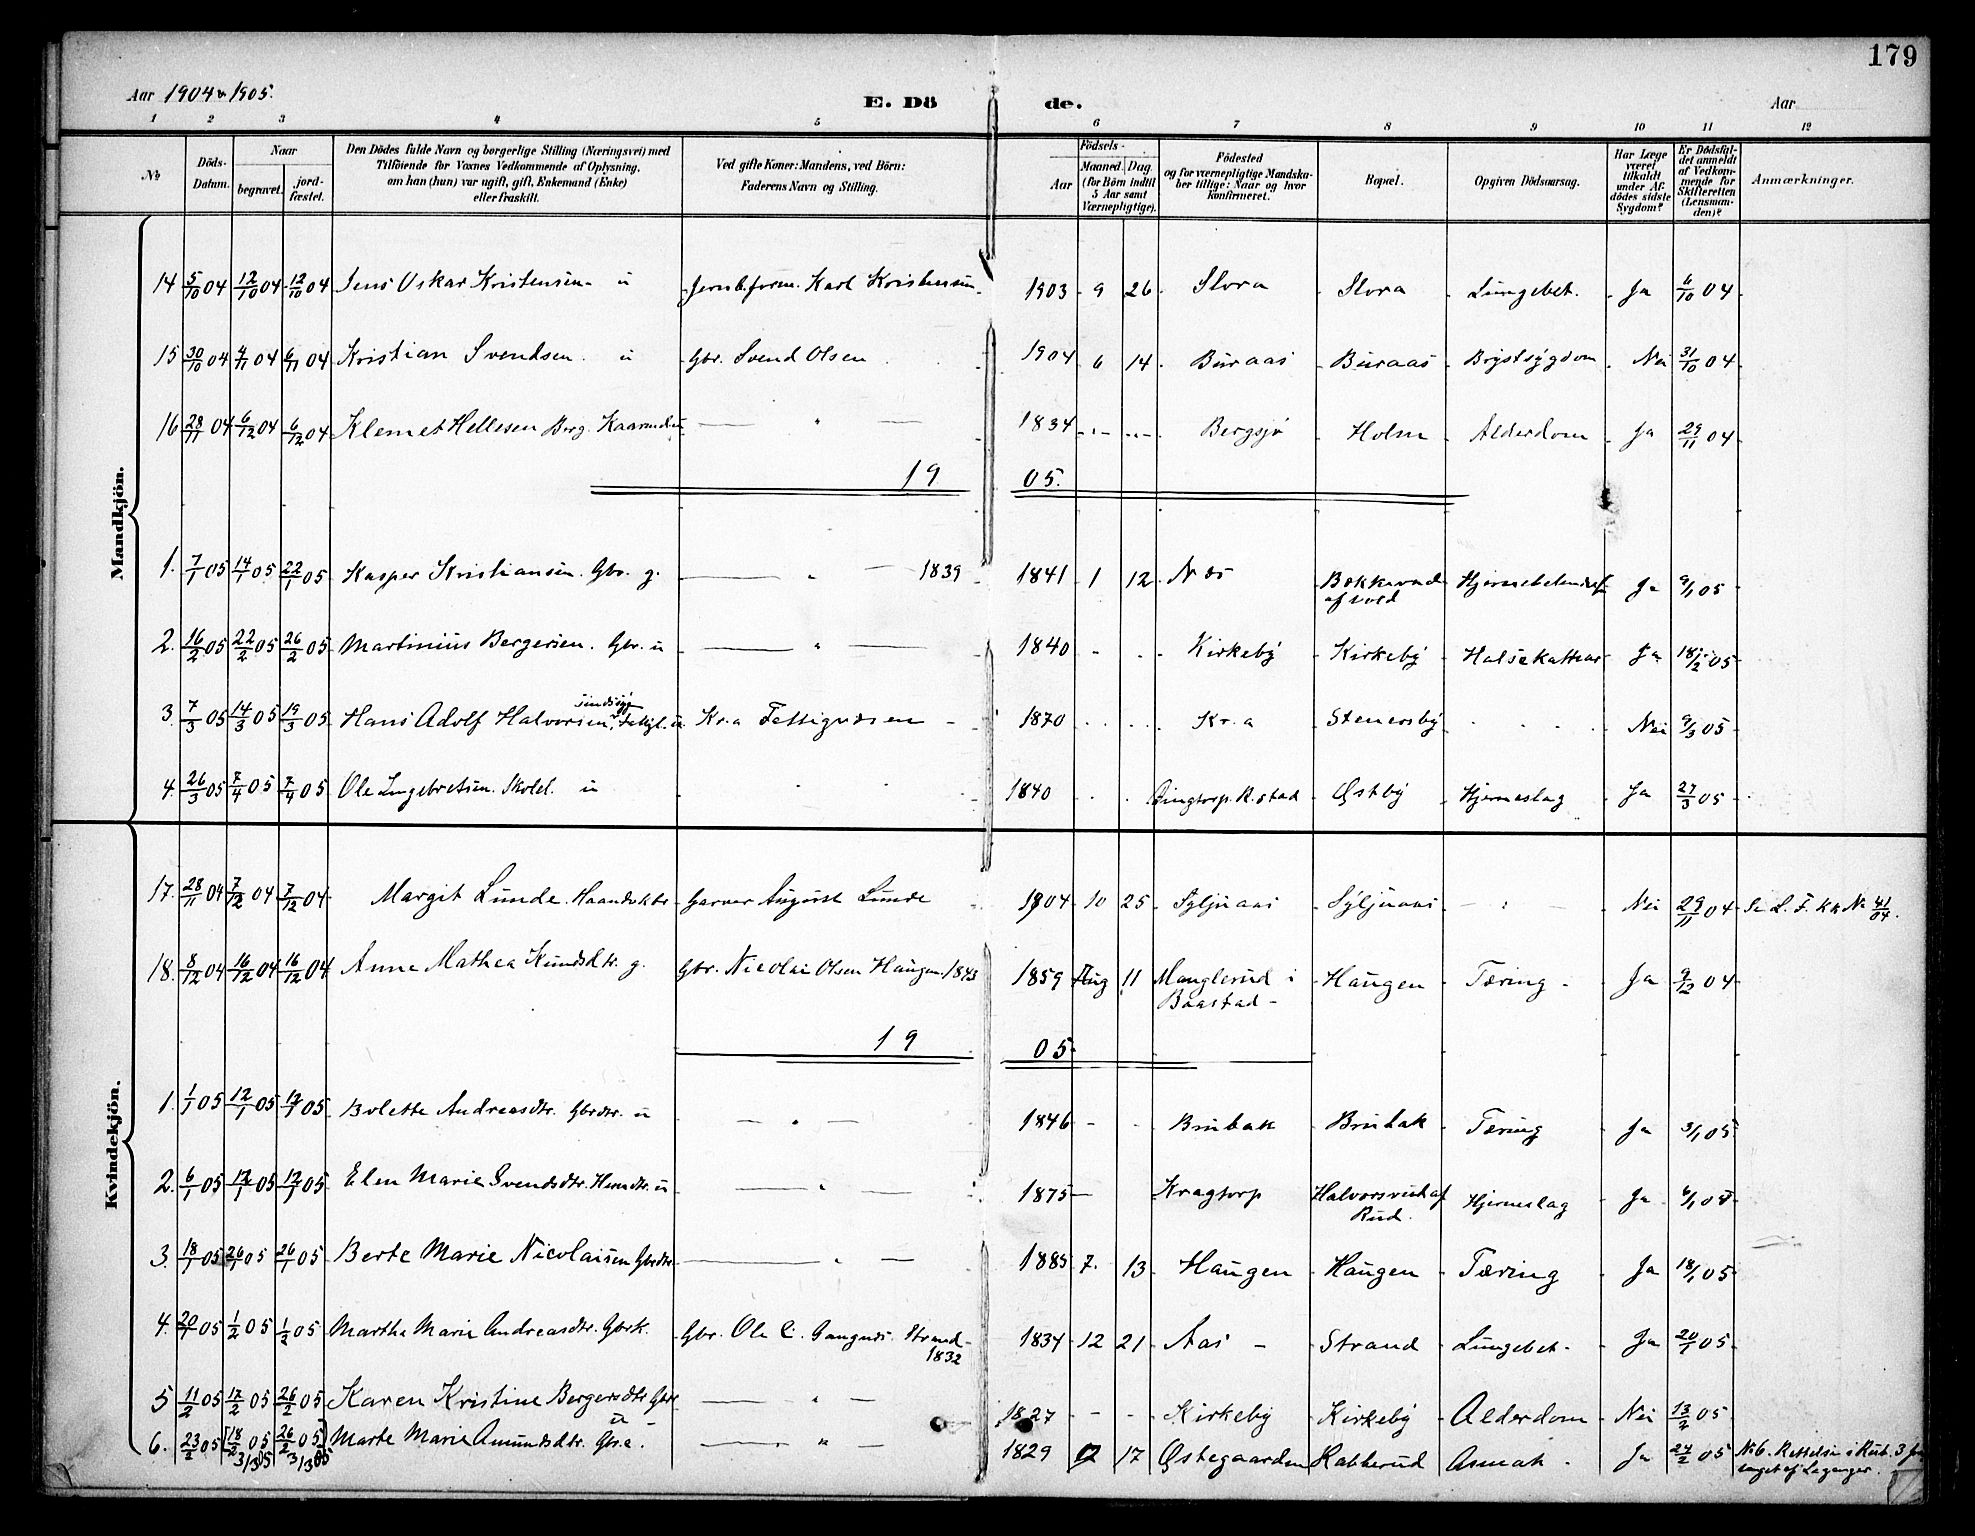 179
Aar 1904 & 1905.
E. Dö de.
Aar
1 2 3 4 5 6 7 8 9 10 11 12
No
Döds-Datum.
Naar
begravet.
jord-fæstet.
Den Dödes fulde Navn og borgerlige Stilling (Næringsvei) med
Tilföiende for Voxnes Vedkommende af Oplysning,
om han (hun) var ugift, gift, Enkemand (Enke)
eller fraskilt.
Ved gifte Koner: Mandens, ved Börn:
Faderens Navn og Stilling.
Födsels-
Aar
Maaned. Dag.
(for Börn indtil
5 Aar samt
Værnepligtige).
Födested
og for værnepligtige Mandska-
ber tillige: Naar og hvor
konfirmeret.
Bopæl.
Opgiven Dödsaarsag.
Har Læge
været
tilkaldt
under Af-
dödes sidste
Sygdom?
Er Dödsfal-
det anmeldt
af Vedkom-
mende for
Skifteretten
(Lensman-
den)?
Anmærkninger.
Mandkjön.
14 5/10 04 12/10 04 12/10 04 Jens Oskar Kristensen. u Jernb.form. Karl Kristensen. 1903 9 26 Slora Slora Lungebet. Ja 6/10 04
15 30/10 04 6/11 04 Kristian Svendsen. u Gbr. Svend Olsen 1904 6 14 Buraas Buraas Brystsygdom Nei 31/10 04
16 28/11 04 6/12 04 6/12 04 Klemet Hellesen Berg. 1834 Bergsjö Holm Alderdom Ja 29/11 04
19 05.
1. 7/1 05 14/1 05 22/1 05 Kasper Kristiansen. Gbr. g. " 1839 1841 1 12 Næs
af Ja 9/1 05
2. 16/2 05 22/2 05 26/2 05 Martinius Bergersen. Gbr. u " 1840 Kirkeby Kirkeby Halsekathar Ja 18/2 05
sindssyg
3. 7/3 05 14/3 05 19/3 05 Hans Adolf Halvorsen, Kr.a Fattigvæsen 1870 Kr.a Stenersby Nei 9/3 05
4. 26/3 05 7/4 05 7/4 05 Ole Ingebretsen. u 1840 Østby Hjerneslag Ja 27/3 05
Kvindekjön.
17. 28/11 04 7/12 04 7/12 04 Margit Lunde. Garver August Lunde 1904 10 25 Syljuaas Syljuaas Nei 29/11 04 No 41/04.
18. 8/12 04 16/12 04 16/12 04 Anne Mathea Knudsdtr. g. Gbr. Nicolai Olsen Haugen. 1843 1859 Aug 11 Manglerud i Haugen Tæring Ja 9/12 04
Baastad
19 05.
1. 1/1 05 12/1 05 12/1 05 Bolette Andreasdtr. Gbrdtr. u " 1846 Brubak Brubak Tæring Ja 3/1 05
2. 6/1 05 12/1 05 12/1 05 Elen Marie Svendsdtr. u " 1875 Kragtorp Halvorsrud af Hjerneslag Ja 05
Rud.
3. 18/1 05 26/1 05 26/1 05 Berte Marie Nicolaisen Gbrdtr. " 1885 7. 13 Haugen Haugen Tæring Ja 18/1 05
4. 20/1 05 1/2 05 1/2 05 Martha Marie Andreasdtr. Gbrk. Gbr. Ole C. Strand 1834 12 21 Aas Strand Lungebet. Ja 20/1 05
1832
5 11/2 05 17/2 05 26/2 05 Karen Kristine Bergersdtr. " 1827 Kirkeby Kirkeby Alderdom Nei 13/2 05
u
6. 23/2 05 18/2 05 26/2 05 Marte Marie Amundsdtr. " 1829 12 17 Østegaarden Kabberud Asmah Ja 24/2 05 No 6. Rettelse i Rub. 3
3/3 05 3/3 05